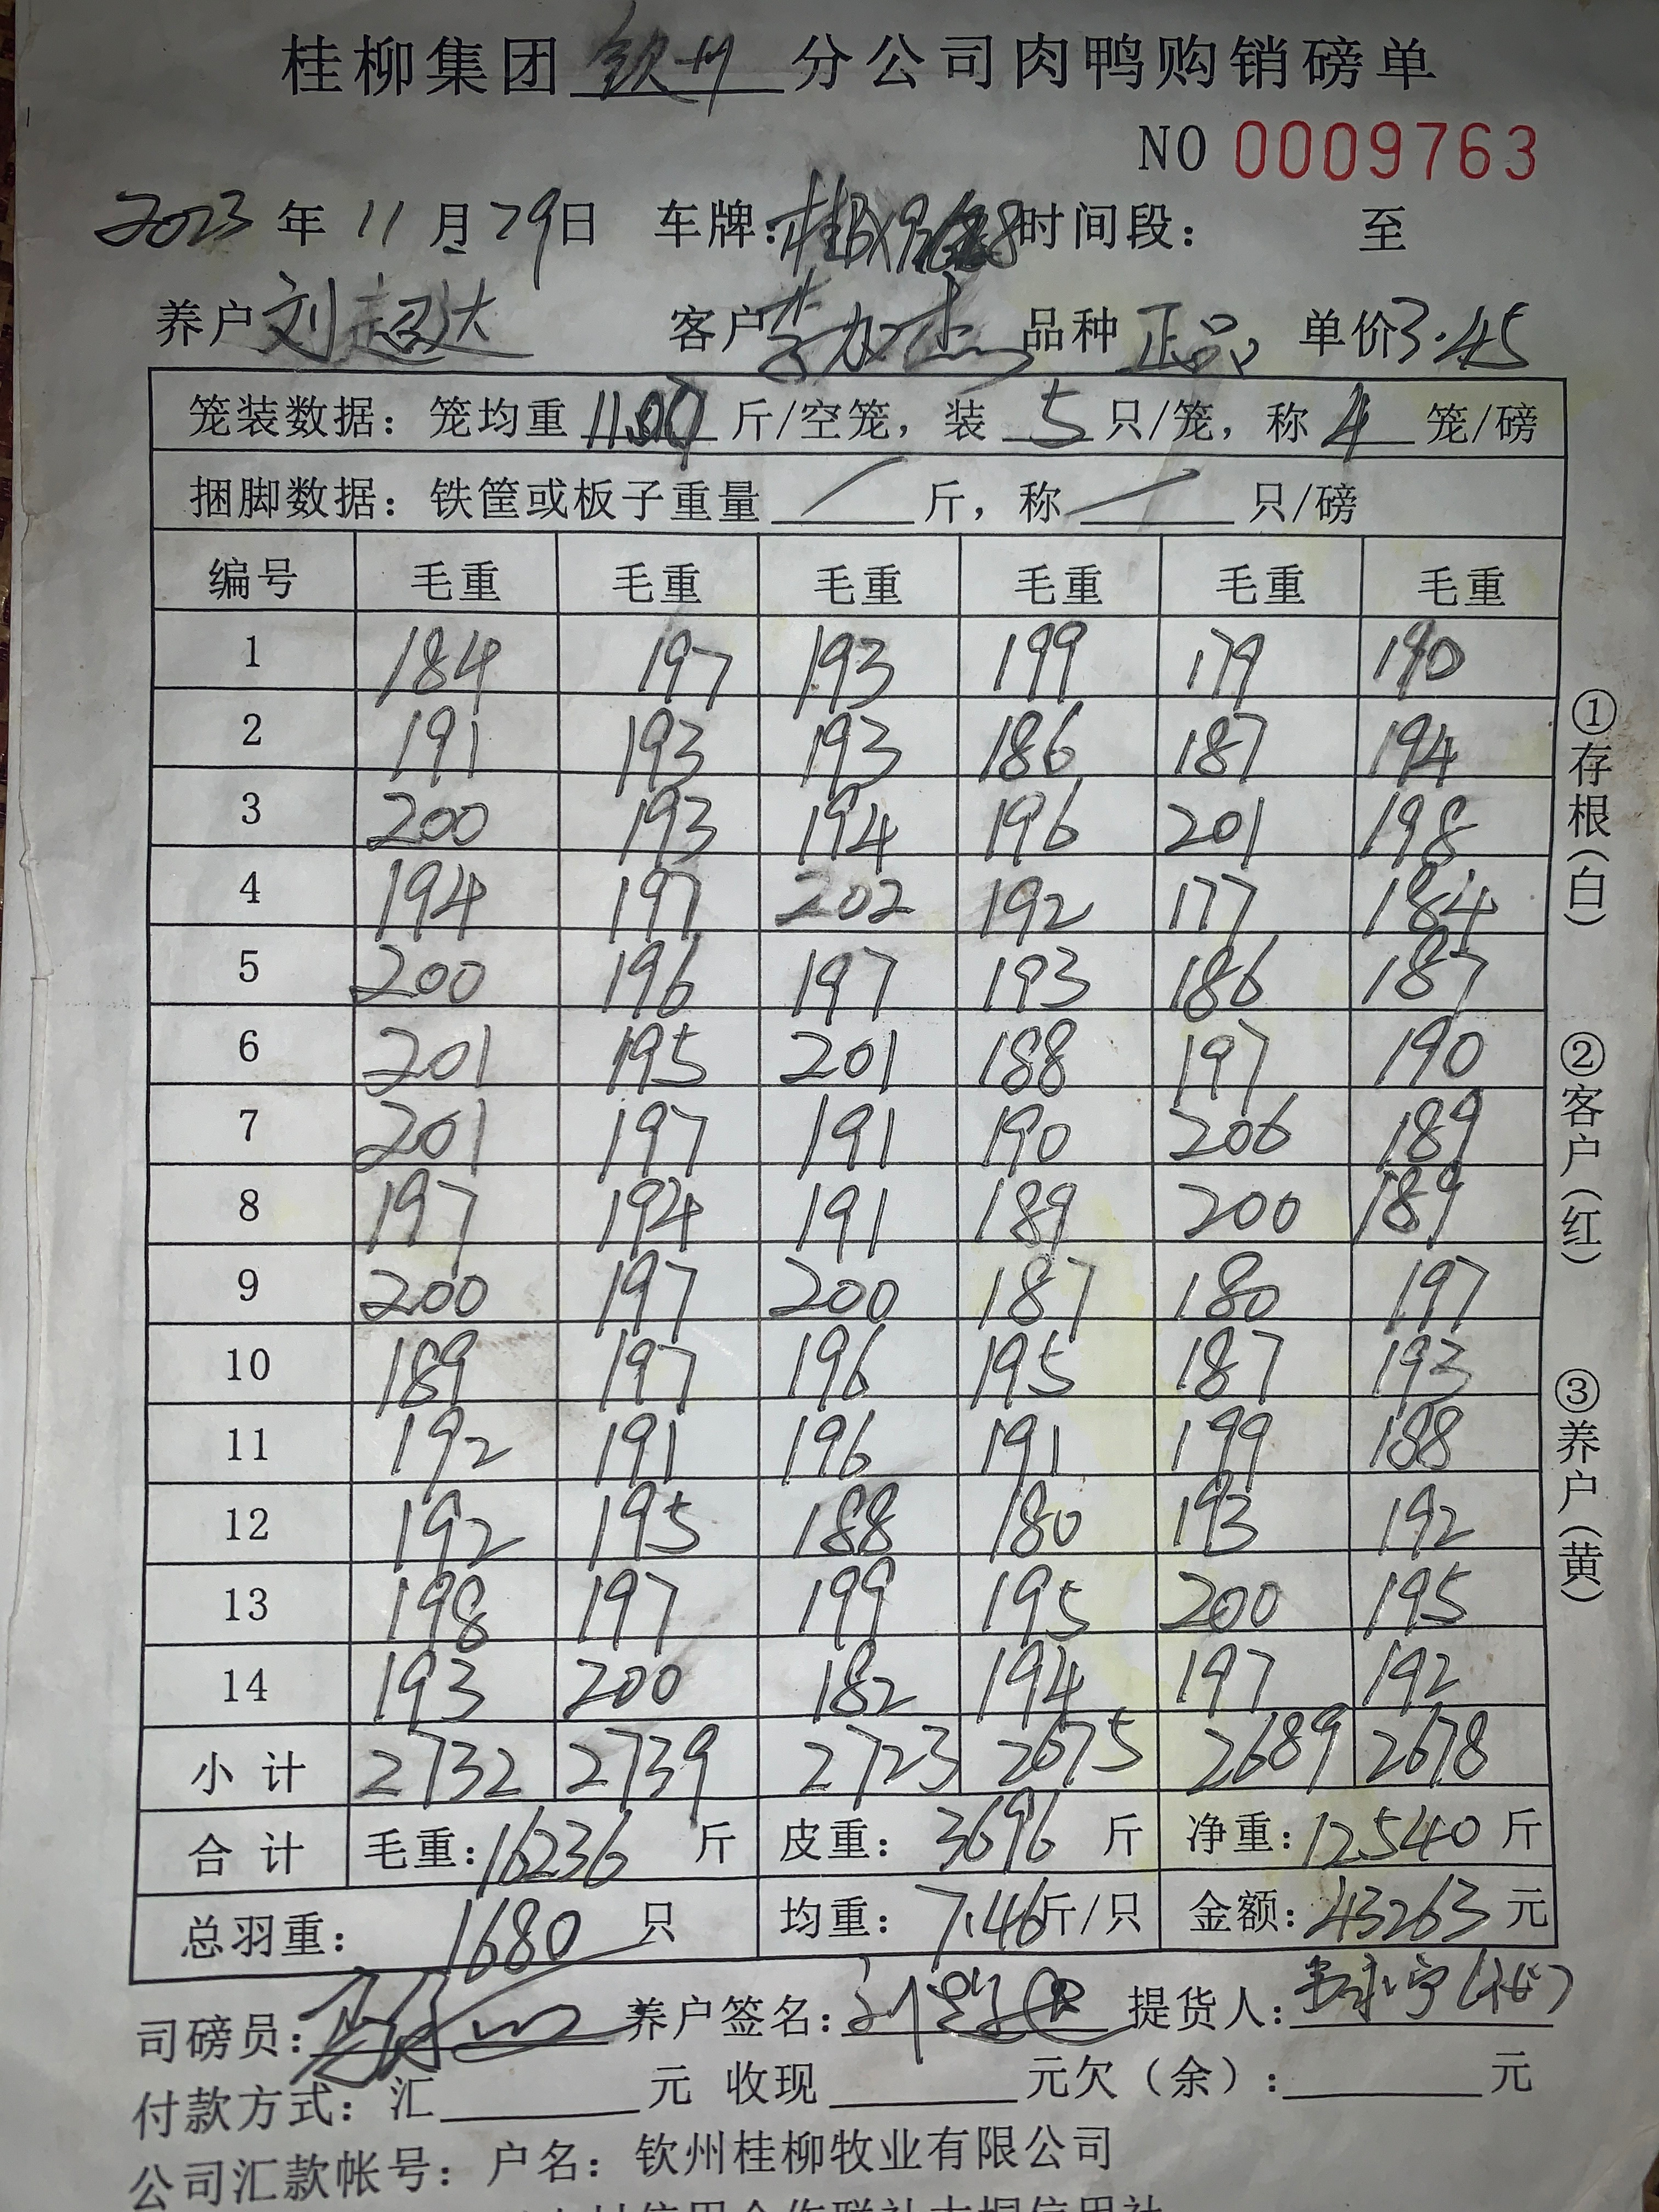 桂柳集团钦州分公司肉鸭购销磅单
NO 0009763
2023年11月29日 车牌: 时间段: 至
养户刘超达 客户李加杰 品种正品 单价3.45
笼装数据: 笼均重 11.00 斤/空笼, 装 5 只/笼, 称 4 笼/磅
捆脚数据: 铁筐或板子重量 / 斤, 称 / 只/磅
编号 毛重 毛重 毛重 毛重 毛重 毛重
1 184 197 193 199 179 190
2 191 193 193 186 187 194
3 200 193 194 196 201 198
4 194 197 202 192 177 184
5 200 196 197 193 186 187
6 201 195 201 188 197 190
7 201 197 191 190 206 189
8 197 194 191 189 200 189
9 200 197 200 187 180 197
10 189 197 196 195 187 193
11 192 191 196 191 199 188
12 192 195 188 180 193 192
13 198 197 199 195 200 195
14 193 200 182 194 197 192
小计 2732 2739 2723 2675 2689 2678
合计 毛重:16236 斤 皮重: 3696 斤 净重:12540 斤
总羽重: 1680 只 均重: 7.46斤/只 金额:43263元
司磅员: 养户签名: 提货人:
付款方式: 汇 元 收现 元欠(余): 元
公司汇款帐号: 户名: 钦州桂柳牧业有限公司
①存根(白)
②客户(红)
③养户(黄)